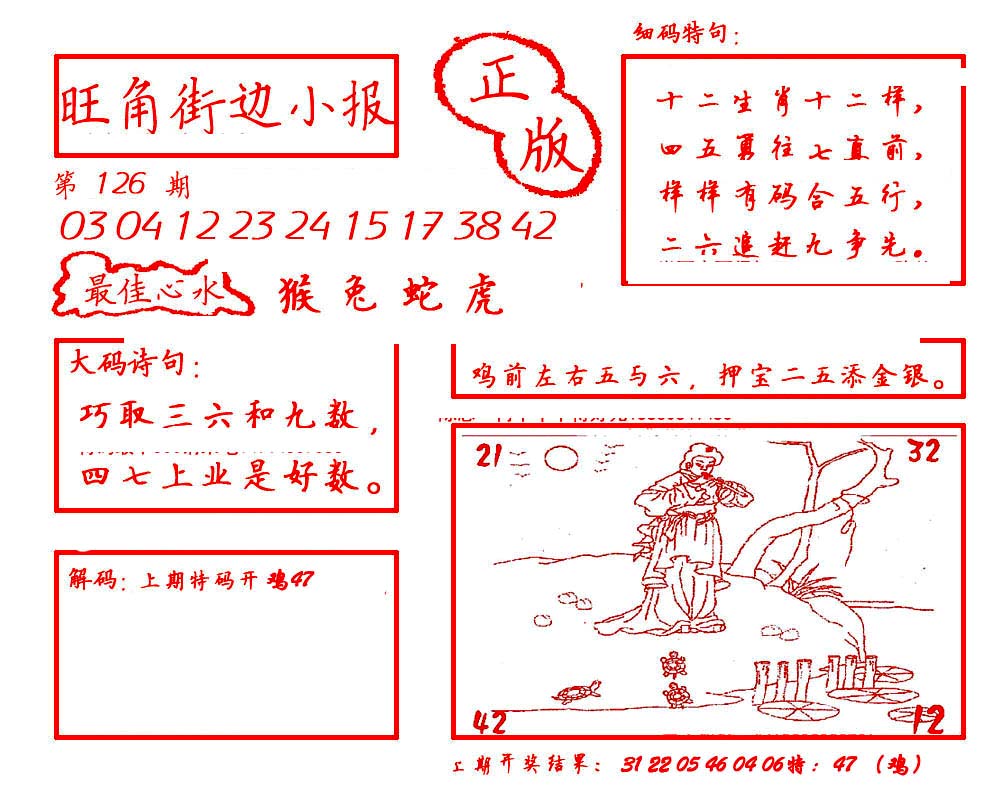 细码特句：
旺角街边小报
正版
十二生肖十二样，
四五勇往七直前，
样样有码合五行，
二六追赶九争先。
第 126 期
03 04 12 23 24 15 17 38 42
最佳心水 猴 兔 蛇 虎
大码诗句：
巧取三六和九数，
四七上业是好数。
鸡前左右五与六，押宝二五添金银。
21
32
42
12
解码：上期特码开鸡47
上期开奖结果：31 22 05 46 04 06特：47（鸡）